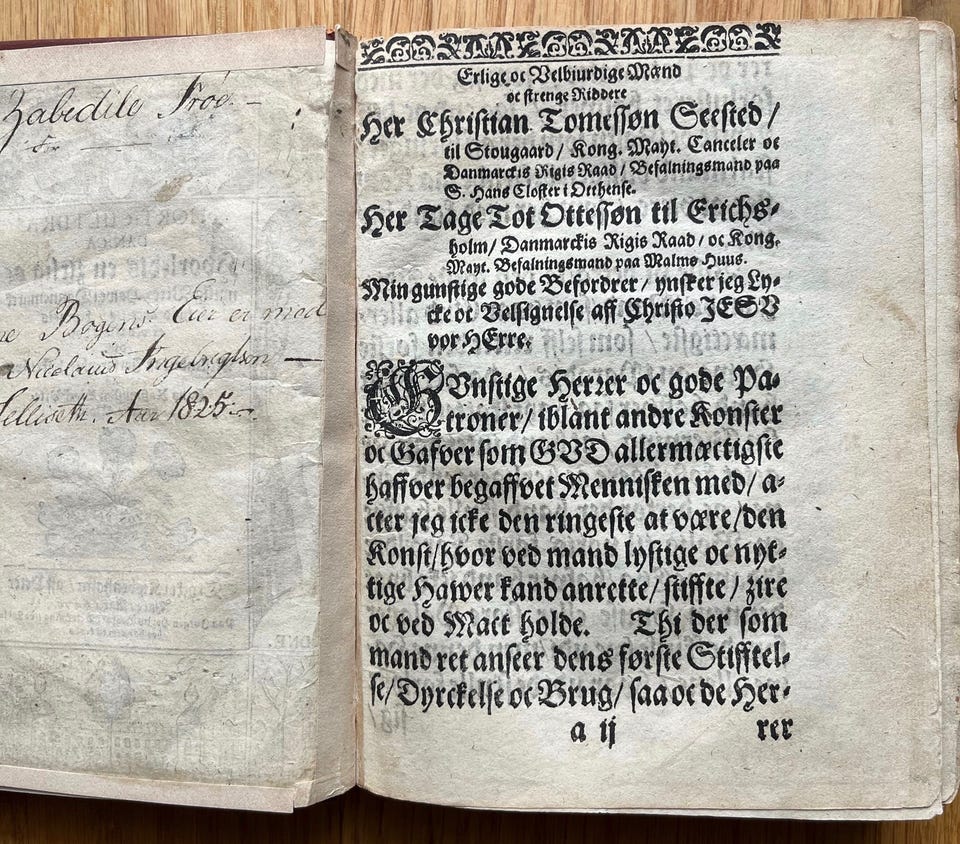 Bogens Eier er med
Nicolaus
Aar 1825
Erlige oc Velbiurdige Mænd
oc strenge Riddere
Her Christian Tomessøn Seested /
til Stougaard / Kong. Mayt. Canceler oc
Danmarckis Rigis Raad / Befalningsmand paa
S. Hans Closter i Otthense.
Her Tage Tot Ottessøn til Erichs-
holm / Danmarckis Rigis Raad / oc Kong.
Mayt. Befalningsmand paa Malmø Huus.
Min gunstige gode Befordrer / ynsker jeg Ly-
cke oc Velsignelse aff Christo JESV
vor HErre.
GVnstige Herrer oc gode Pa-
troner / iblant andre Konster
oc Gafver som GVD allermæctigste
haffver begaffvet Mennisken med / a-
cter jeg icke den ringeste at være / den
Konst / hvor ved mand lystige oc nyt-
tige Hawer kand anrette / stiffte / zire
oc ved Mact holde. Thi der som
mand ret anseer dens første Stifftel-
se / Dyrckelse oc Brug / saa oc de Her-
a ij rer